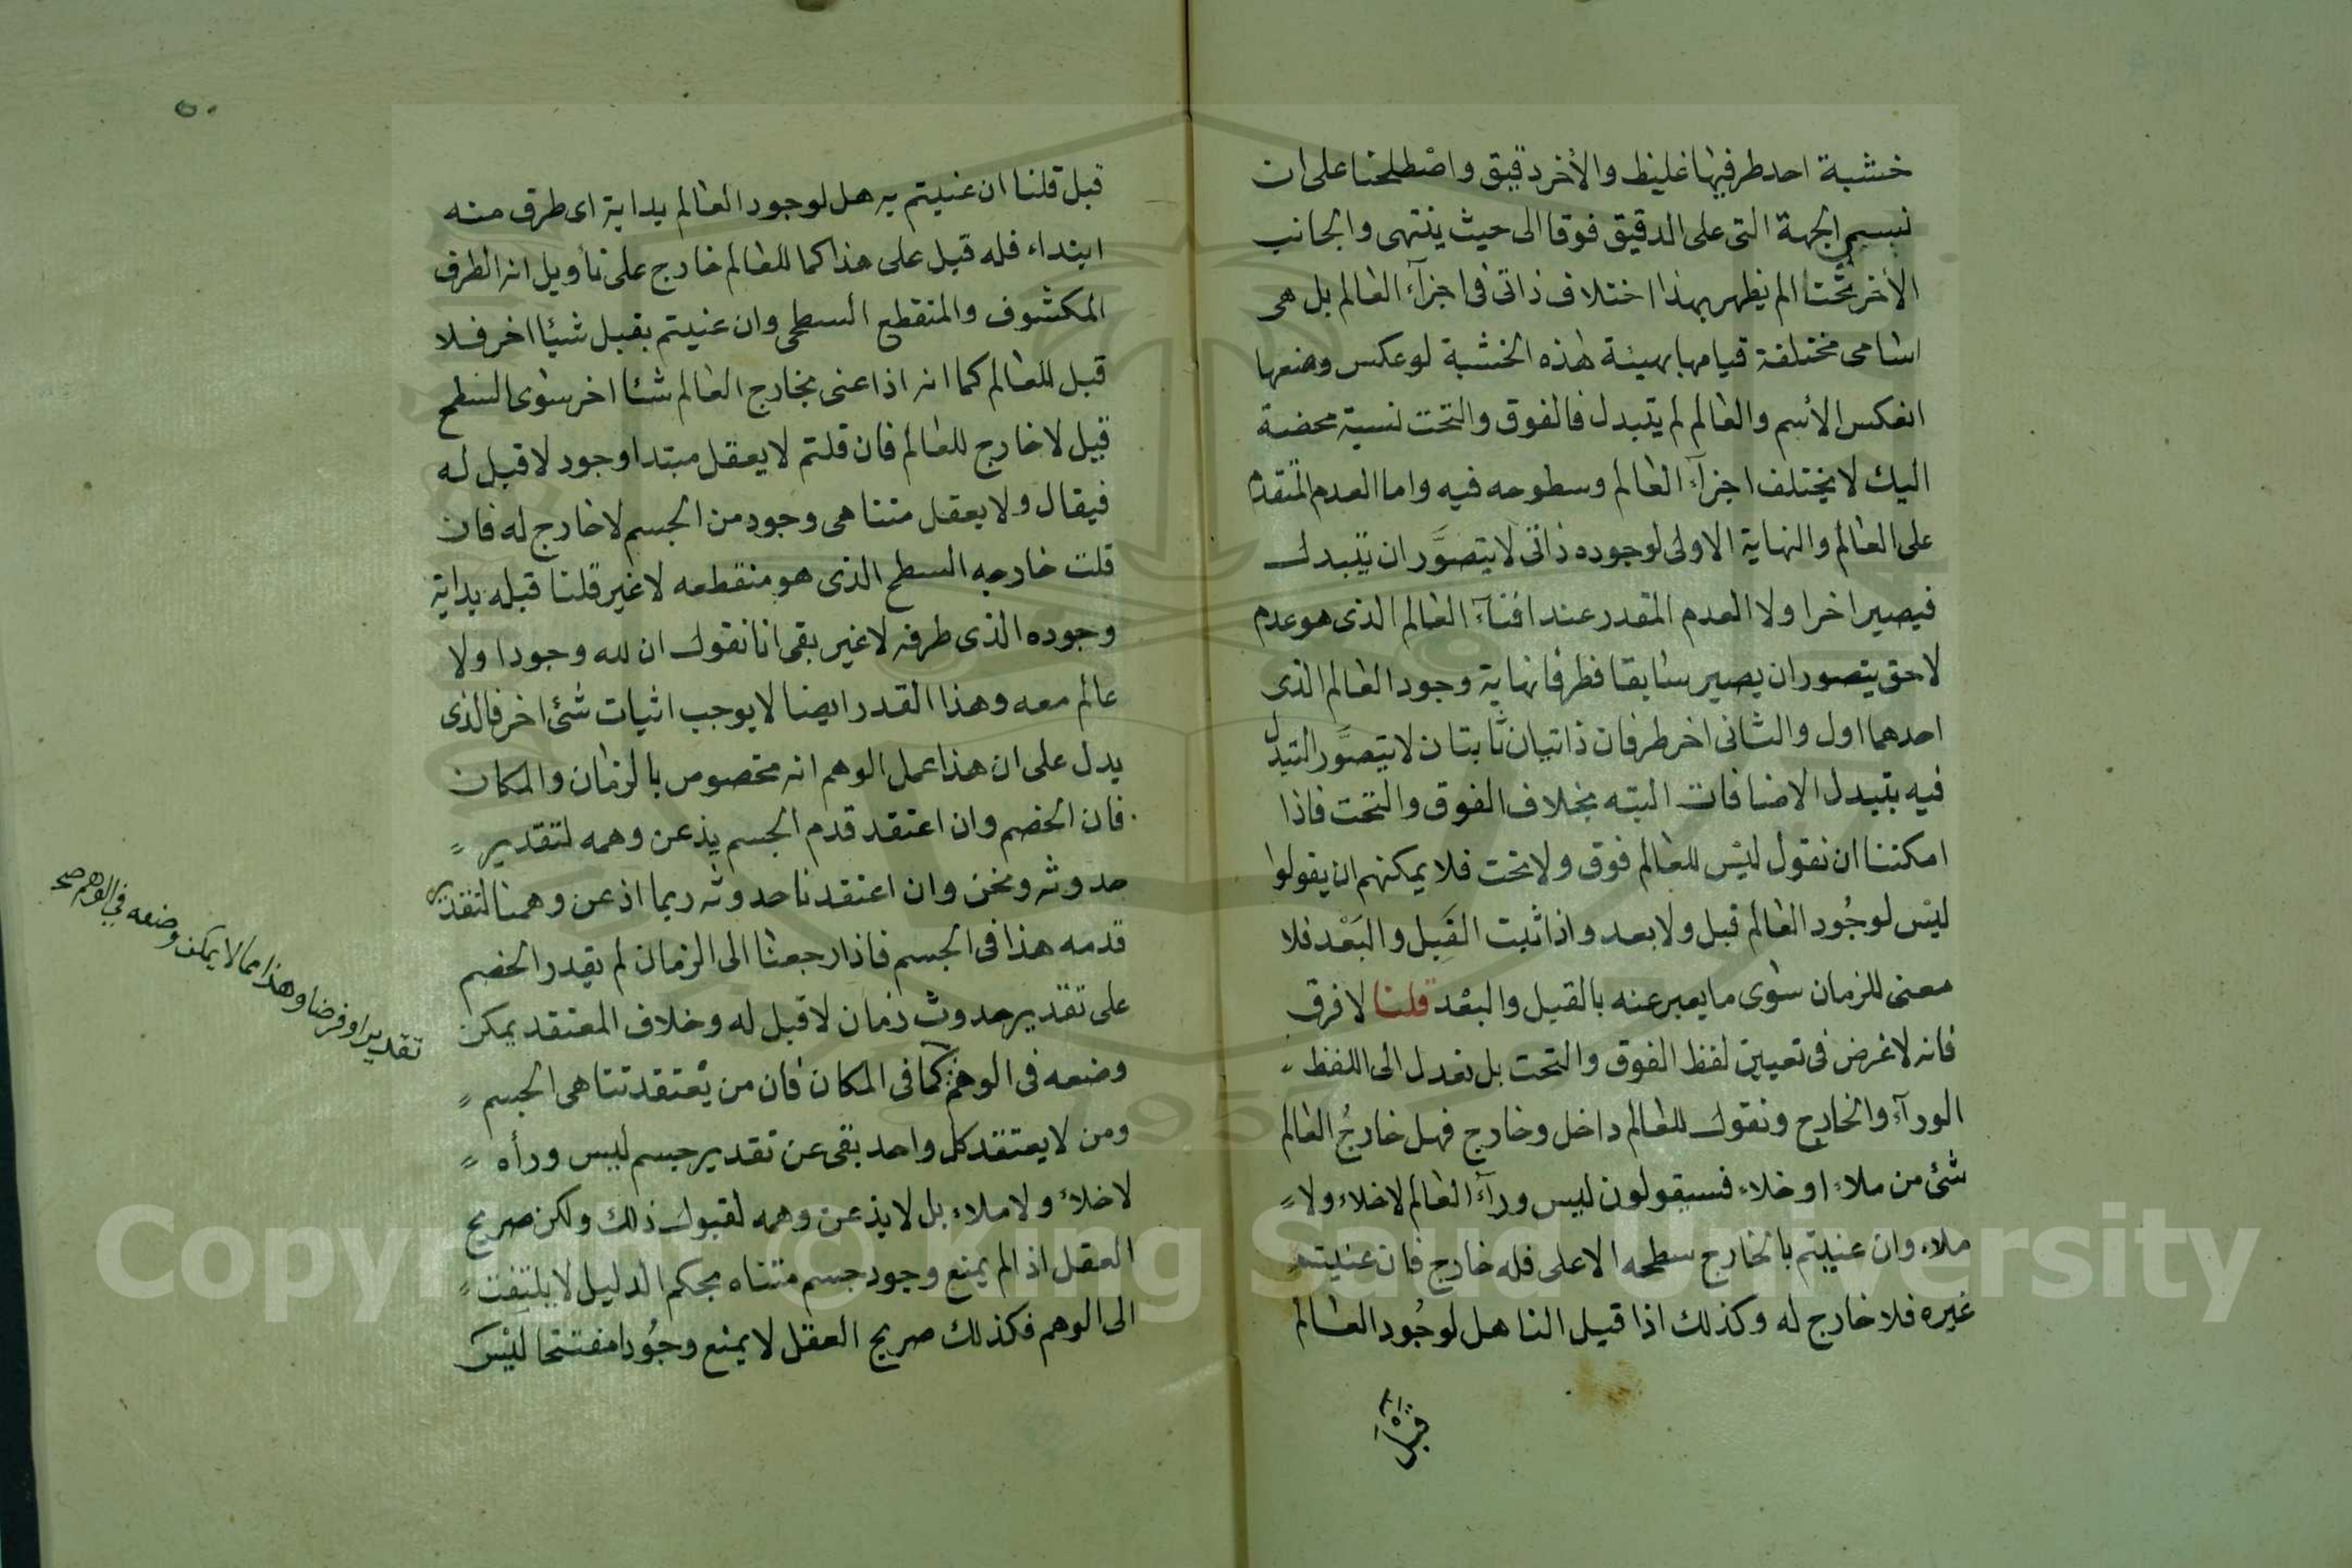 خشبة احد طرفيها غليظ والأخر دقيق واصْطلحنا على ان
نسمي الجهة التى على الدقيق فوقا الى حيث ينتهى والجانب
الأخر تحتا لم يظهر بهذا اختلاف ذاتى فى اجزآء العالم بل هى
اسامى مختلفة قيامها بهيئة هذه الخشبة لو عكس وضعها
انعكس الأسم والعالم لم يتبدل فالفوق والتحت نسبة محضة
اليك لا يختلف اجزآء العالم وسطوحه فيه واما العدم المتقدم
على العالم والنهاية الاولى لوجوده ذاتى لا يتصوَّر ان يتبدل
فيصير اخرا ولا العدم المقدر عند افنآء العالم الذى هو عدم
لاحق يتصور ان يصير سابقا فطرفا نهاية وجود العالم الذى
احدهما اول والثانى اخر طرفان ذاتيان ثابتان لا يتصوَّر التبدل
فيه بتبدل الاضافات البته بخلاف الفوق والتحت فاذا
امكننا ان نقول ليْس للعالم فوق ولا تحت فلا يمكنهم ان يقولوا
ليْس لوجُود العالم قبل ولا بعد واذا ثبت القَبل والبَعْد فلا
معنى للزمان سوى ما يعبر عنه بالقبل والبعْد قلنا لا فرق
فانه لا غرض فى تعيين لفظ الفوق والتحت بل نعدل الى اللفظ
الورآء والخارج ونقول للعالم داخل وخارج فهل خارجُ العالم
شئ من ملاء او خلاء فسيقولون ليس ورآء العالم لا خلاء ولا
ملاء وان عنيتم بالخارج سطحه الاعلى فله خارج فان عنيتم
غيره فلا خارج له وكذلك اذا قيل لنا هل لوجُود العالم
قبل
قبل قلنا ان عنيتم به هل لوجود العالم بداية اى طرف منه
ابتداء فله قبل على هذا كما للعالم خارج على تأويل انه الطرف
المكشوف والمنقطع السطحى وان عنيتم بقبل شيئا اخر فلا
قبل للعالم كما انه اذا عنى بخارج العالم شئا اخر سوى السطح
قيل لا خارج للعالم فان قلتم لا يعقل مبتدا وجود لا قبل له
فيقال ولا يعقل متناهى وجود من الجسم لا خارج له فان
قلت خارجه السطح الذى هو منقطعه لا غير قلنا قبله بداية
وجوده الذى طرفه لا غير بقى انا نقول ان لله وجودا ولا
عالم معه وهذا القدر ايضا لا يوجب اثبات شئ اخر فالذى
يدل على ان هذا عمل الوهم انه مخصوص بالزمان والمكان
فان الخصم وان اعتقد قدم الجسم يذعن وهمه لتقدير
حدوثه ونحن وان اعتقدنا حدوثه ربما اذعن وهمنا لتقدير
قدمه هذا فى الجسم فاذا رجعنا الى الزمان لم يقدر الخصم
على تقدير حدوث زمان لا قبل له وخلاف المعتقد يمكن
وضعه فى الوهم كما فى المكان فان من يْعتقد تناهى الجسم
ومن لا يعتقد كل واحد بقى عن تقدير جسم ليس ورأه
لا خلاء ولا ملاء بل لا يذعن وهمه لقبول ذلك ولكن صريح
العقل اذ الم يمنع وجود جسم متناه بحكم الدليل لا يلتفت
الى الوهم فكذلك صريح العقل لا يمنع وجُودا مفتتحا ليْسَ
تقديرا وفرضا وهذا مما لا يمكن وضعه في الوهم صح